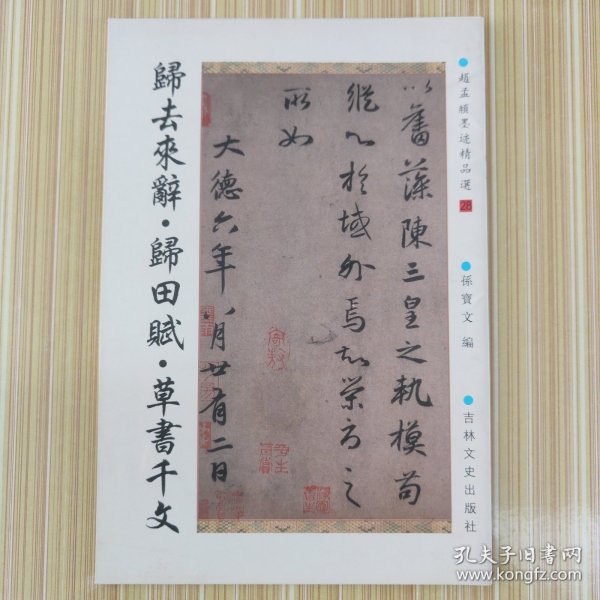 趙孟頫墨迹精品選 28
孫寶文 编
吉林文史出版社
以舊藻陳三皇之軌模苟
縱心於域外焉知榮辱之
所如
大德六年八月廿有二日
歸去來辭·歸田賦·草書千文
孔夫子旧书网
www.kongfz.com